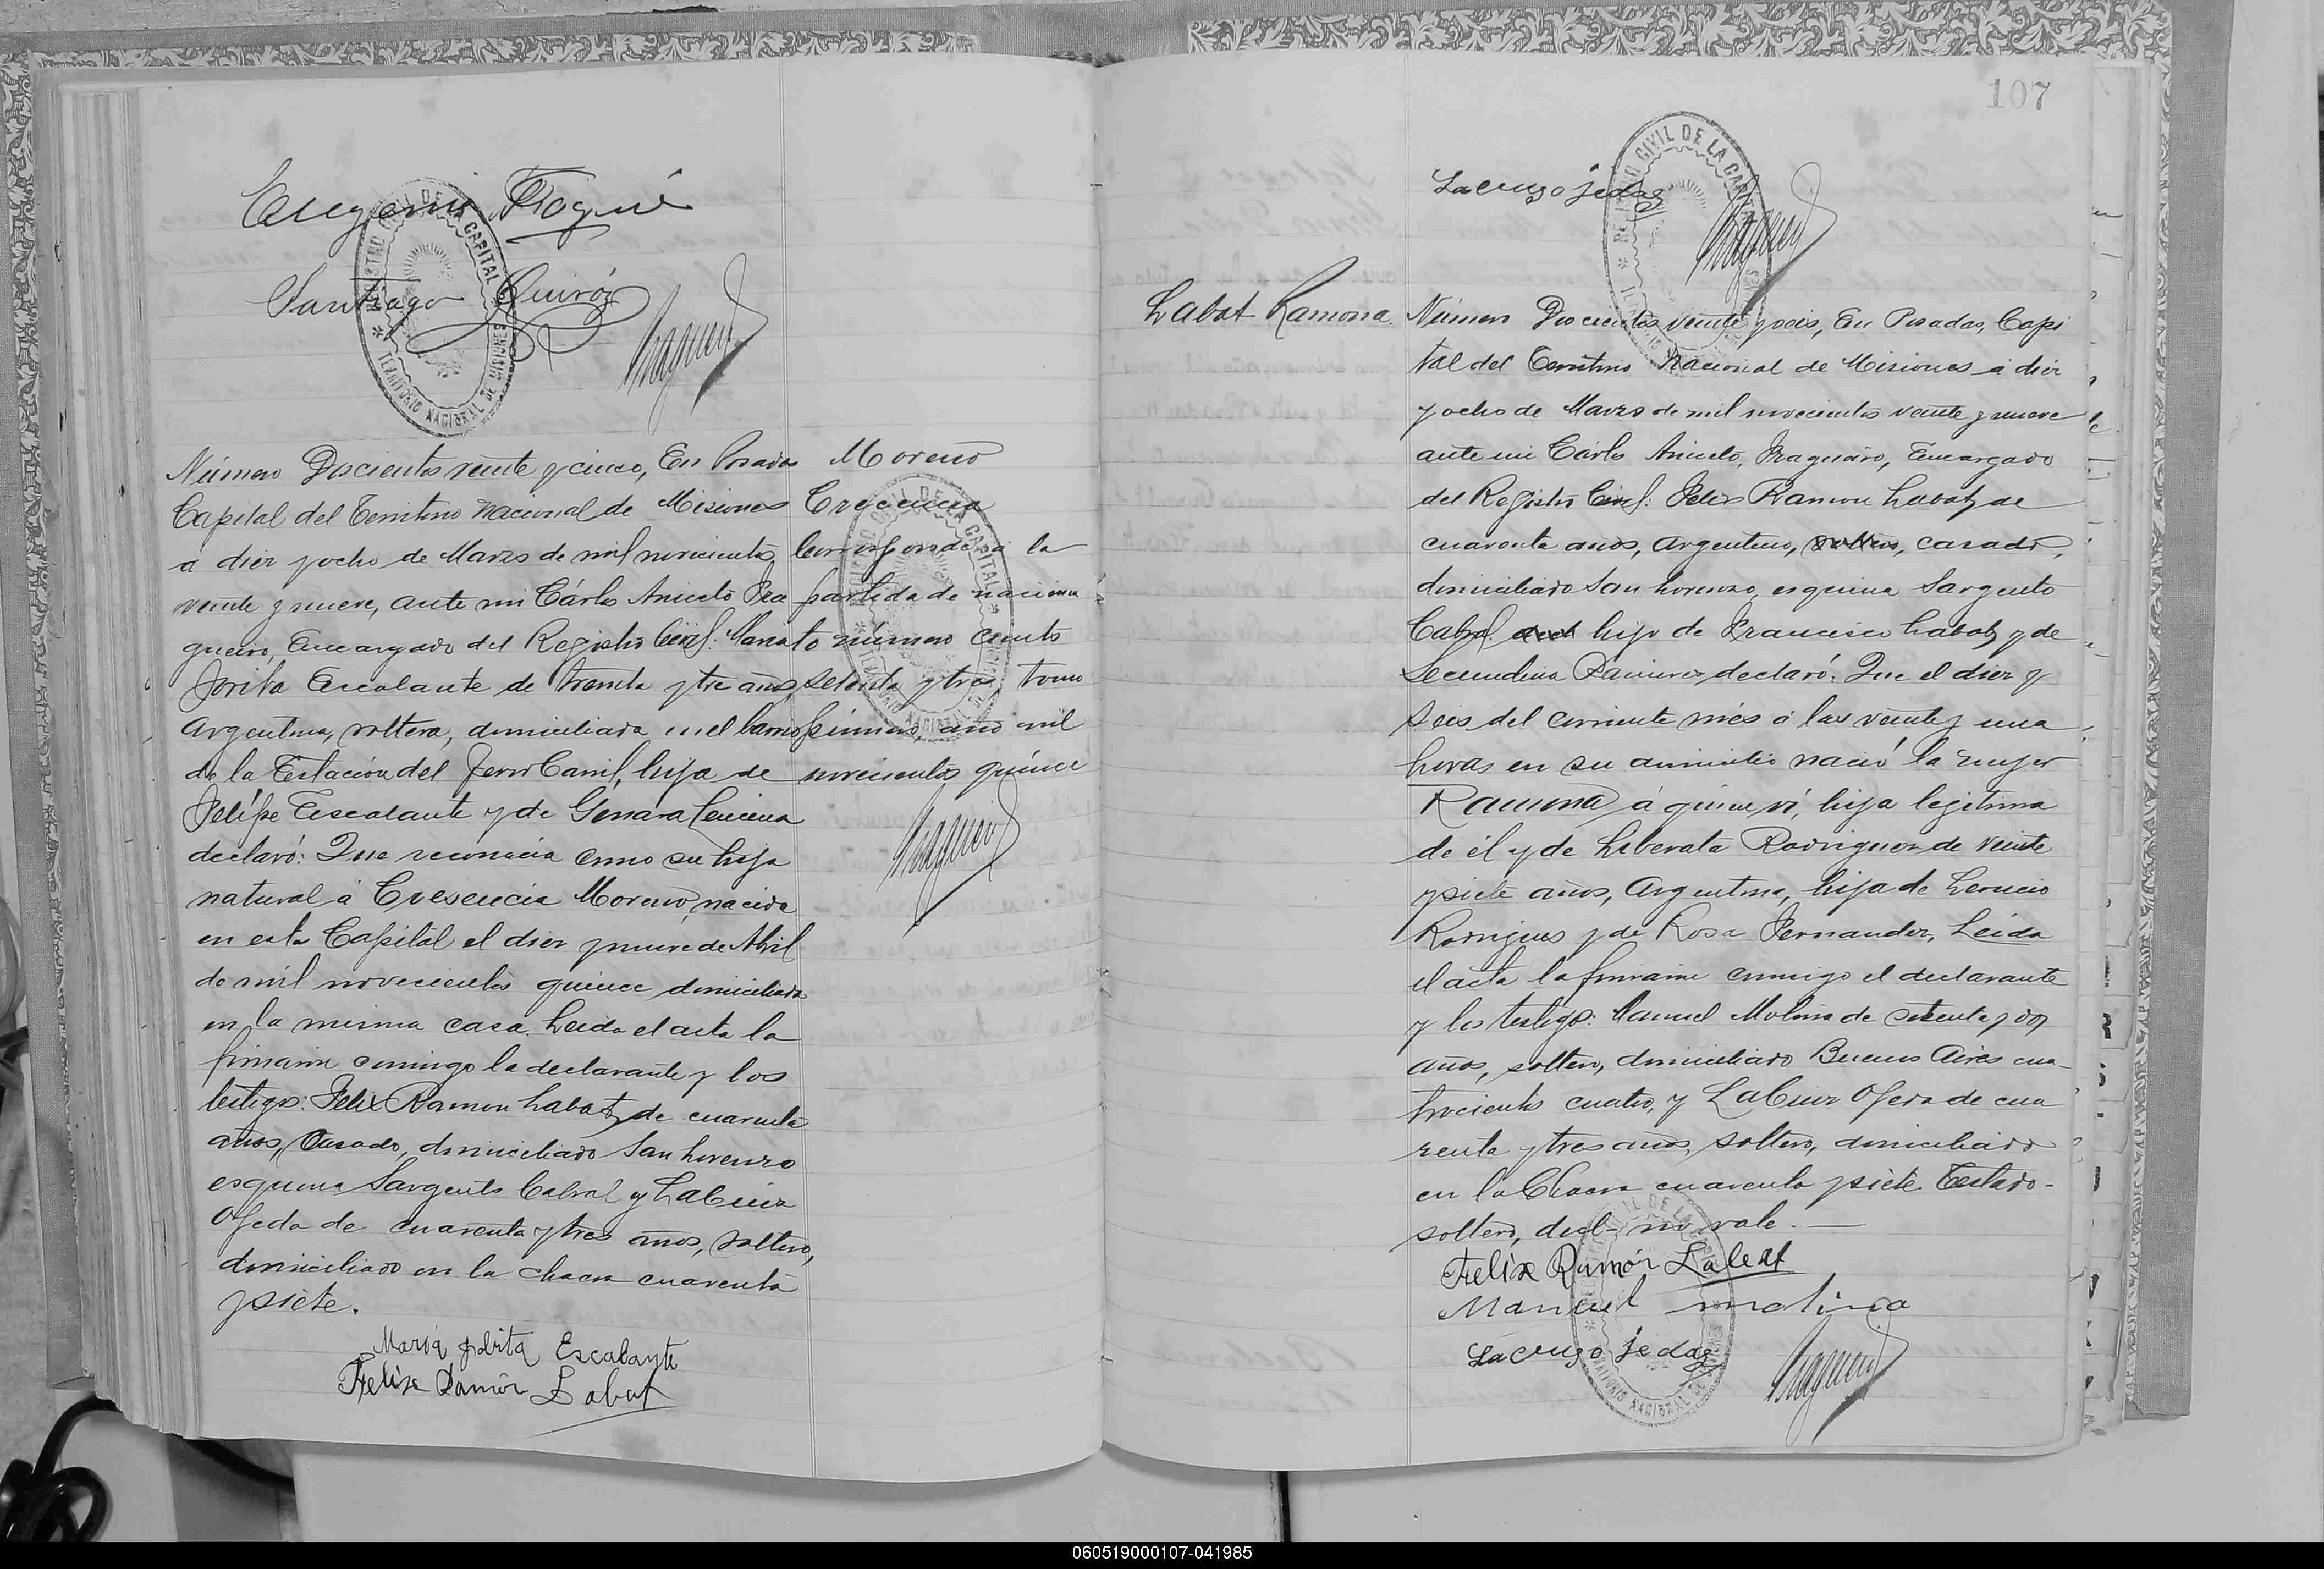 Eugenio Fogué
Santiago Quiróz
REGISTRO CIVIL DE LA CAPITAL
TERRITORIO NACIONAL DE MISIONES
Número Doscientos veinte y cinco, En Posadas
Capital del Territorio Nacional de Misiones
á diez y ocho de Marzo de mil novecientos
veinte y nueve, ante mi Cárlos Aniceto Ira
gueiro, Encargado del Registro Civil: María
Jovita Escalante de treinta y tres años
Argentina, soltera, domiciliada en el barrio
de la Estación del Ferro Carril, hija de
Felipe Escalante y de Genara Lencina
declaró: Que reconocia como su hija
natural á Cresencia Moreno, nacida
en esta Capital el diez y nueve de Abril
de mil novecientos quince domiciliada
en la misma casa. Leida el acta la
firmaron conmigo la declarante y los
testigos: Felix Ramon Labat, de cuarenta
años, Casado, domiciliado San Lorenzo
esquina Sargento Cabral y LaCruz
Ojeda de cuarenta y tres años, soltero,
domiciliado en la chacra cuarenta
y siete.
María Jovita Escalante
Felix Ramón Labat
Moreno
Crecencia
Corresponde á la
partida de nacimien
to número ciento
setenta y tres, tomo
primero, año mil
novecientos quince
REGISTRO CIVIL DE LA CAPITAL
TERRITORIO NACIONAL DE MISIONES
107
Lacruz ojedaz
REGISTRO CIVIL DE LA CAPITAL
Labat Ramona
Número Doscientos veinte y seis, En Posadas, Capi
tal del Territorio Nacional de Misiones á diez
y ocho de Marzo de mil novecientos veinte y nueve
ante mi Cárlos Aniceto, Iragueiro, Encargado
del Registro Civil: Felix Ramon Labat, de
cuarenta años, Argentino, soltero, casado,
domiciliado San Lorenzo, esquina Sargento
Cabral decl hijo de Francisco Labat, y de
Secundina Ramirez, declaró: Que el diez y
seis del corriente mes á las veinte y una
horas en su domicilio nació la mujer
Ramona á quien ví, hija legitima
de él y de Liberata Rodriguez de veinte
y siete años, Argentina, hija de Leoncio
Rodrigues y de Rosa Fernandez, Leida
el acta la firmaron conmigo el declarante
y los testigos: Manuel Molina de setenta y dos
años, soltero, domiciliado Buenos Aires cua-
trocientos cuatro, y LaCruz Ojeda de cua
renta y tres años, soltero, domiciliado
en la Chacra cuarenta y siete. Testado-
soltero, decl- no vale.—
Felix Ramón Labat
Manuel molina
Lacruz ojedaz
060519000107-041985